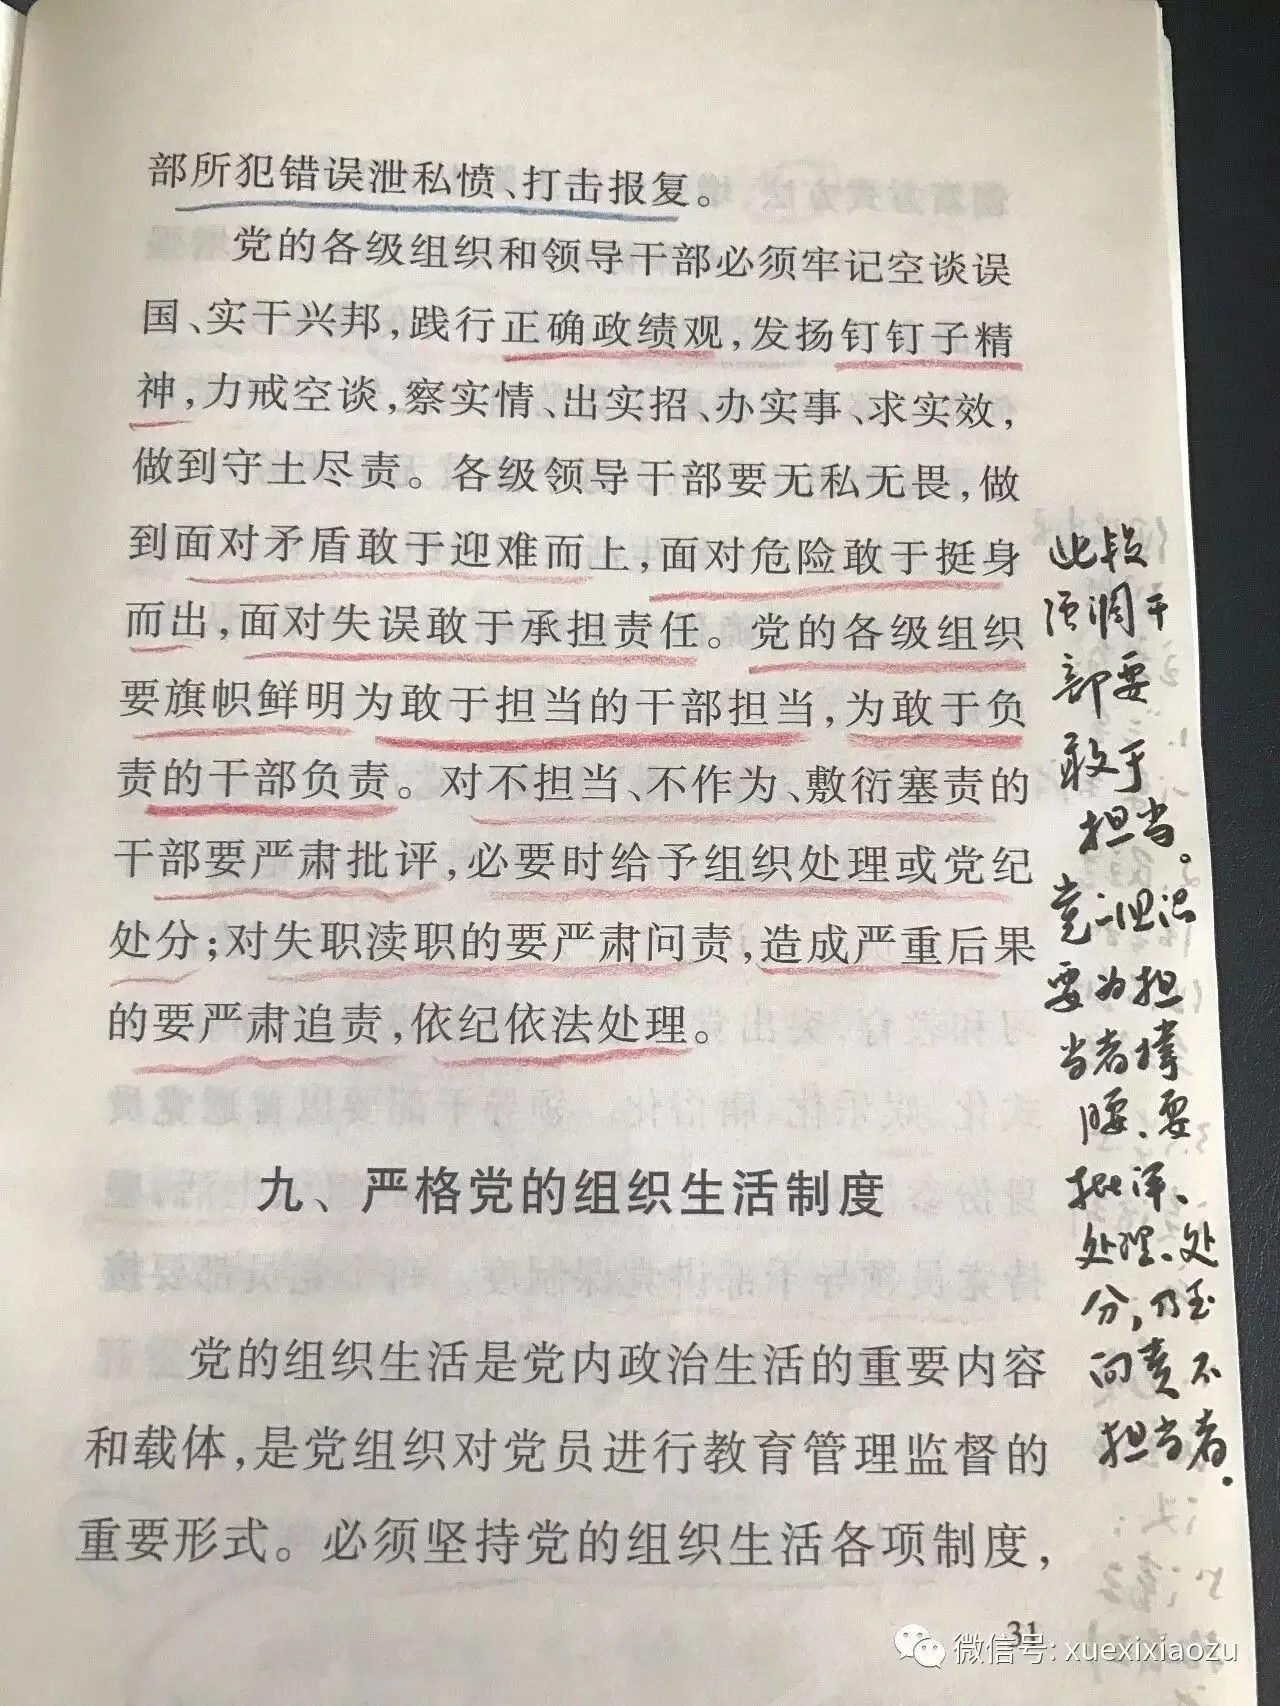 部所犯错误泄私愤、打击报复。
党的各级组织和领导干部必须牢记空谈误
国、实干兴邦，践行正确政绩观，发扬钉钉子精
神，力戒空谈，察实情、出实招、办实事、求实效，
做到守土尽责。各级领导干部要无私无畏，做
到面对矛盾敢于迎难而上，面对危险敢于挺身
而出，面对失误敢于承担责任。党的各级组织
要旗帜鲜明为敢于担当的干部担当，为敢于负
责的干部负责。对不担当、不作为、敷衍塞责的
干部要严肃批评，必要时给予组织处理或党纪
处分；对失职渎职的要严肃问责，造成严重后果
的要严肃追责，依纪依法处理。
九、严格党的组织生活制度
党的组织生活是党内政治生活的重要内容
和载体，是党组织对党员进行教育管理监督的
重要形式。必须坚持党的组织生活各项制度，
此段
强调干
部要
敢于
担当。
党的组织
要为担
当者撑
腰、要
批评、
处理、处
分，乃至
问责不
担当者.
31
微信号: xuexixiaozu